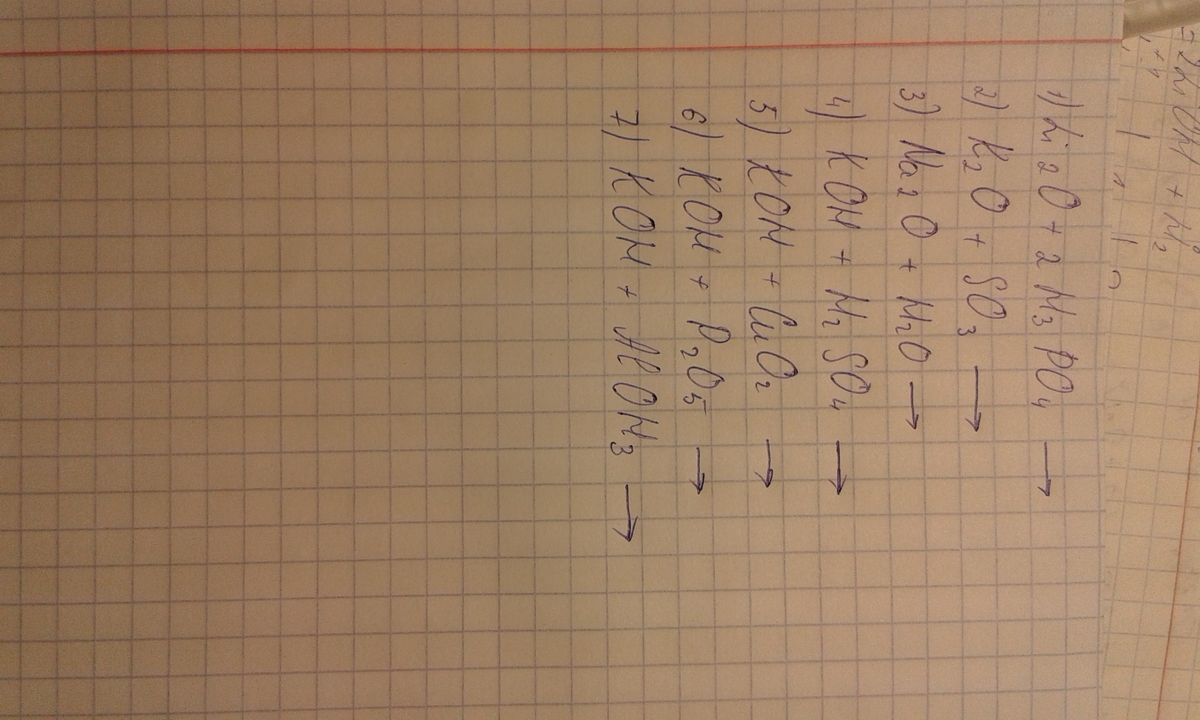 1) Li2O + 2H3PO4 →
2) K2O + SO3 →
3) Na2O + H2O →
4) KOH + H2SO4 →
5) KOH + CuO2 →
6) KOH + P2O5 →
7) KOH + AlOH3 →